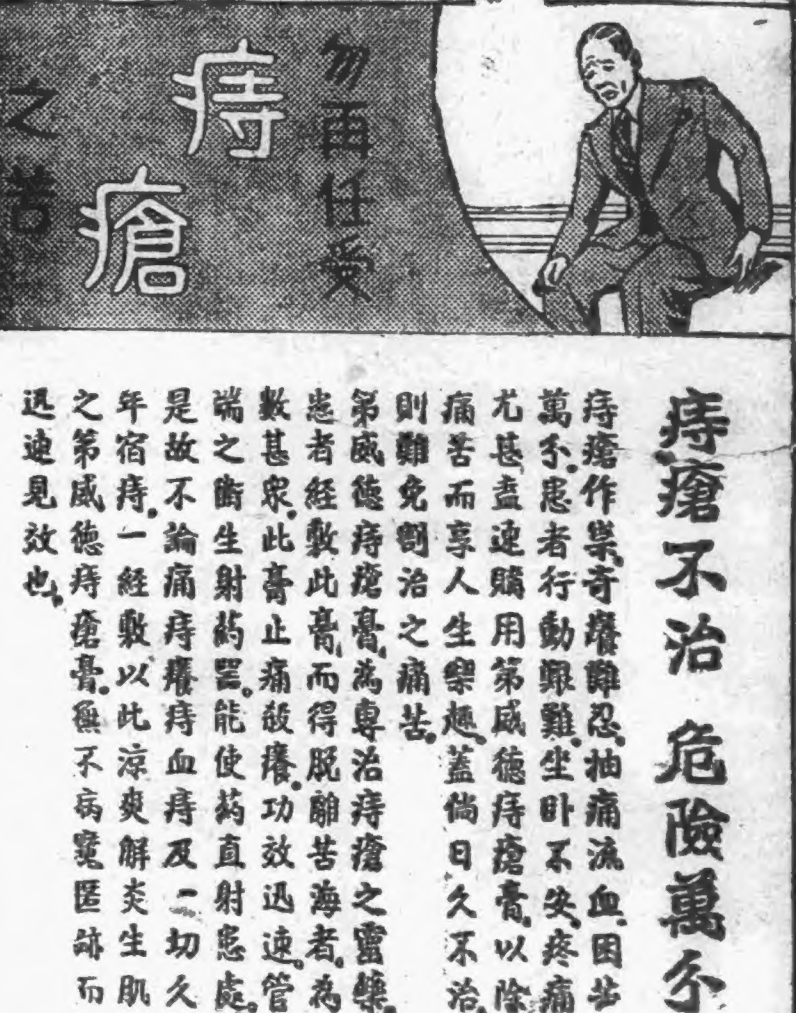 勿再任受
痔瘡
之苦
痔瘡不治 危險萬分
痔瘡作祟。奇癢難忍。抽痛流血。困苦
萬分。患者行動艱難。坐卧不安。疼痛
尤甚。盍速購用第威德痔瘡膏。以除
痛苦而享人生樂趣。蓋倘日久不治。
則難免割治之痛苦。
第威德痔瘡膏。為專治痔瘡之靈藥。
患者經敷此膏。而得脫離苦海者。為
數甚衆。此膏止痛殺癢。功效迅速。管
端之嶄生射葯器。能使葯直射患處。
是故不論痛痔癢痔血痔及一切久
年宿痔。一經敷以此涼爽解炎生肌
之第威德痔瘡膏。無不病魔匿跡而
迅速見效也。